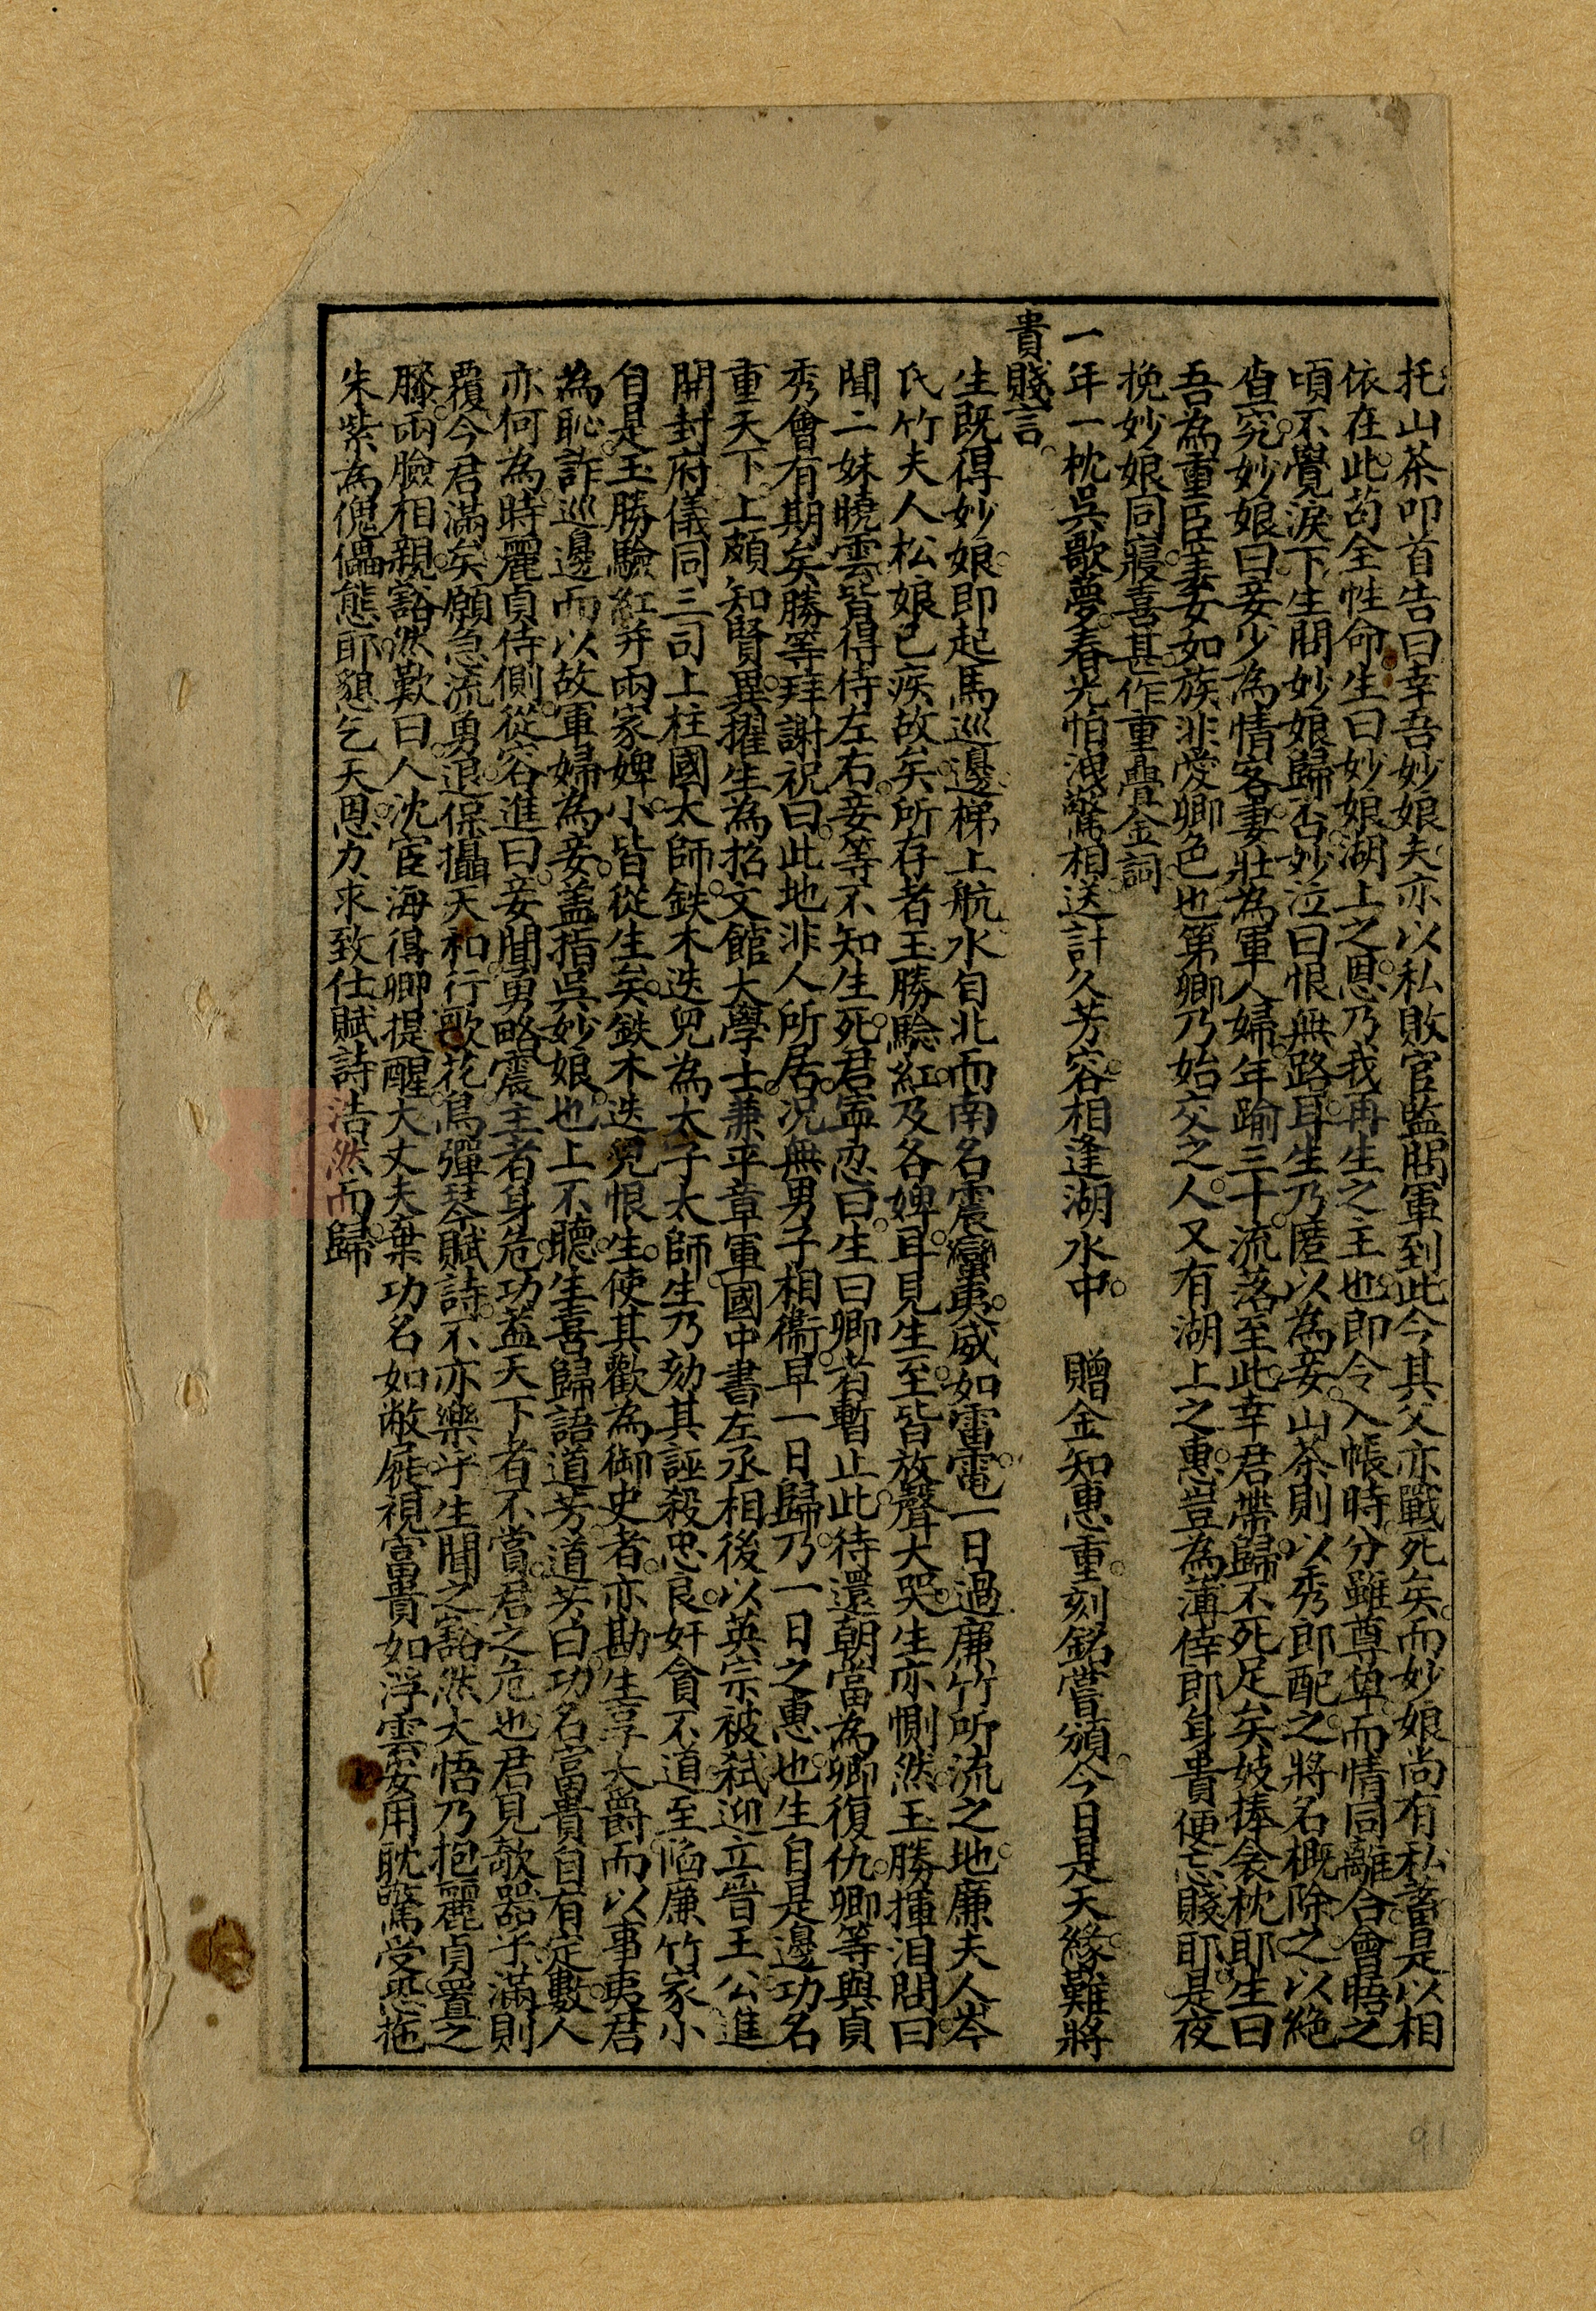 托山茶叩首告曰幸吾妙娘夫亦以私敗官監關軍到此今其父亦戰死矣而妙娘尚有私蓄是以相
依在此苟全性命生曰妙娘湖上之恩乃我再生之主也即令入帳時分雖尊卑而情同離合會晤之
頃不覺淚下生問妙娘歸否妙泣曰恨無路耳生乃匿以為妾山茶則以秀郎配之將名概除之以絕
查究妙娘曰妾少為情客妻壯為軍人婦年踰三十流落至此幸君帶歸不死足矣妓捧衾枕耶生曰
吾為重臣妻女如族非愛卿色也第卿乃始交之人又有湖上之惠豈為薄倖郎身貴便忘賤耶是夜
挽妙娘同寢喜甚作重疊金詞
一年一枕吳歌夢春光怕洩驚相送計久芳容相逢湖水中　贈金知惠重刻銘嘗頒今日是天緣難將
貴賤言
生既得妙娘即起馬巡邊梯上航水自北而南名震蠻夷威如雷電一日過廉竹所流之地廉夫人岑
氏竹夫人松娘已疾故矣所存者玉勝驗紅及各婢耳見生至皆放聲大哭生亦惻然玉勝揮淚問曰
聞二妹曉雲皆得侍左右妾等不知生死君寧忍曰生曰卿者暫止此待還朝當為卿復仇卿等與貞
秀會有期矣勝等拜謝祝曰此地非人所居况無男子相衞早一日歸乃一日之惠也生自是邊功名
重天下上頗知賢異擢生為招文館大學士兼平章軍國中書左丞相後以英宗被弒迎立晉王公進
開封府儀同三司上柱國太師鉄木迭兒為太子太師生乃劾其誣殺忠良奸貪不道至陷廉竹家小
自是玉勝驗紅并兩家婢小皆從生矣鉄木迭兒恨生使其歡為御史者亦勘生享大爵而以事夷君
為恥詐巡邊而以故軍婦為妾盖指吳妙娘也上不聽生喜歸語道芳道芳曰功名富貴自有定數人
亦何為時麗貞侍側從容進曰妾聞勇略震主者身危功蓋天下者不賞君之危也君見欹器乎滿則
覆今君滿矣願急流勇退保攝天和行歌花鳥彈琴賦詩不亦樂乎生聞之豁然大悟乃抱麗貞置之
膝兩臉相親豁然歎曰人沈宦海得卿提醒大丈夫棄功名如敝屣視富貴如浮雲安用耽驚受恐拖
朱紫為傀儡態耶懇乞天恩力求致仕賦詩浩然而歸